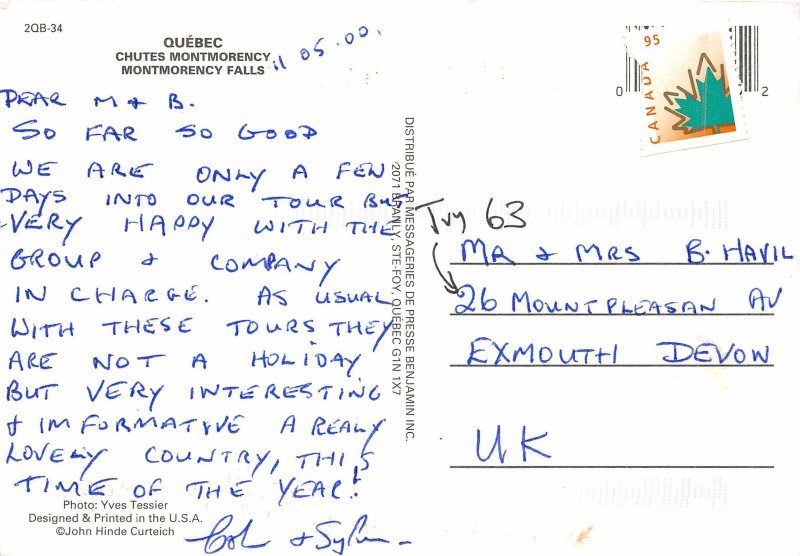 2QB-34
QUÉBEC
CHUTES MONTMORENCY
MONTMORENCY FALLS
11 05.00.
DEAR M & B.
SO FAR SO GOOD
WE ARE ONLY A FEW
DAYS INTO OUR TOUR BUT
VERY HAPPY WITH THE
GROUP & COMPANY
IN CHARGE. AS USUAL
WITH THESE TOURS THEY
ARE NOT A HOLIDAY
BUT VERY INTERESTING
& IMFORMATIVE A REALY
LOVELY COUNTRY, THIS
TIME OF THE YEAR!
& Sylvia
Photo: Yves Tessier
Designed & Printed in the U.S.A.
©John Hinde Curteich
DISTRIBUÉ PAR MESSAGERIES DE PRESSE BENJAMIN INC.
2071 BRANLY, STE-FOY, QUÉBEC G1N 1X7
0 2
CANADA 95
Try 63
MR & MRS B. HAVIL
26 MOUNTPLEASAN AV
EXMOUTH DEVON
UK